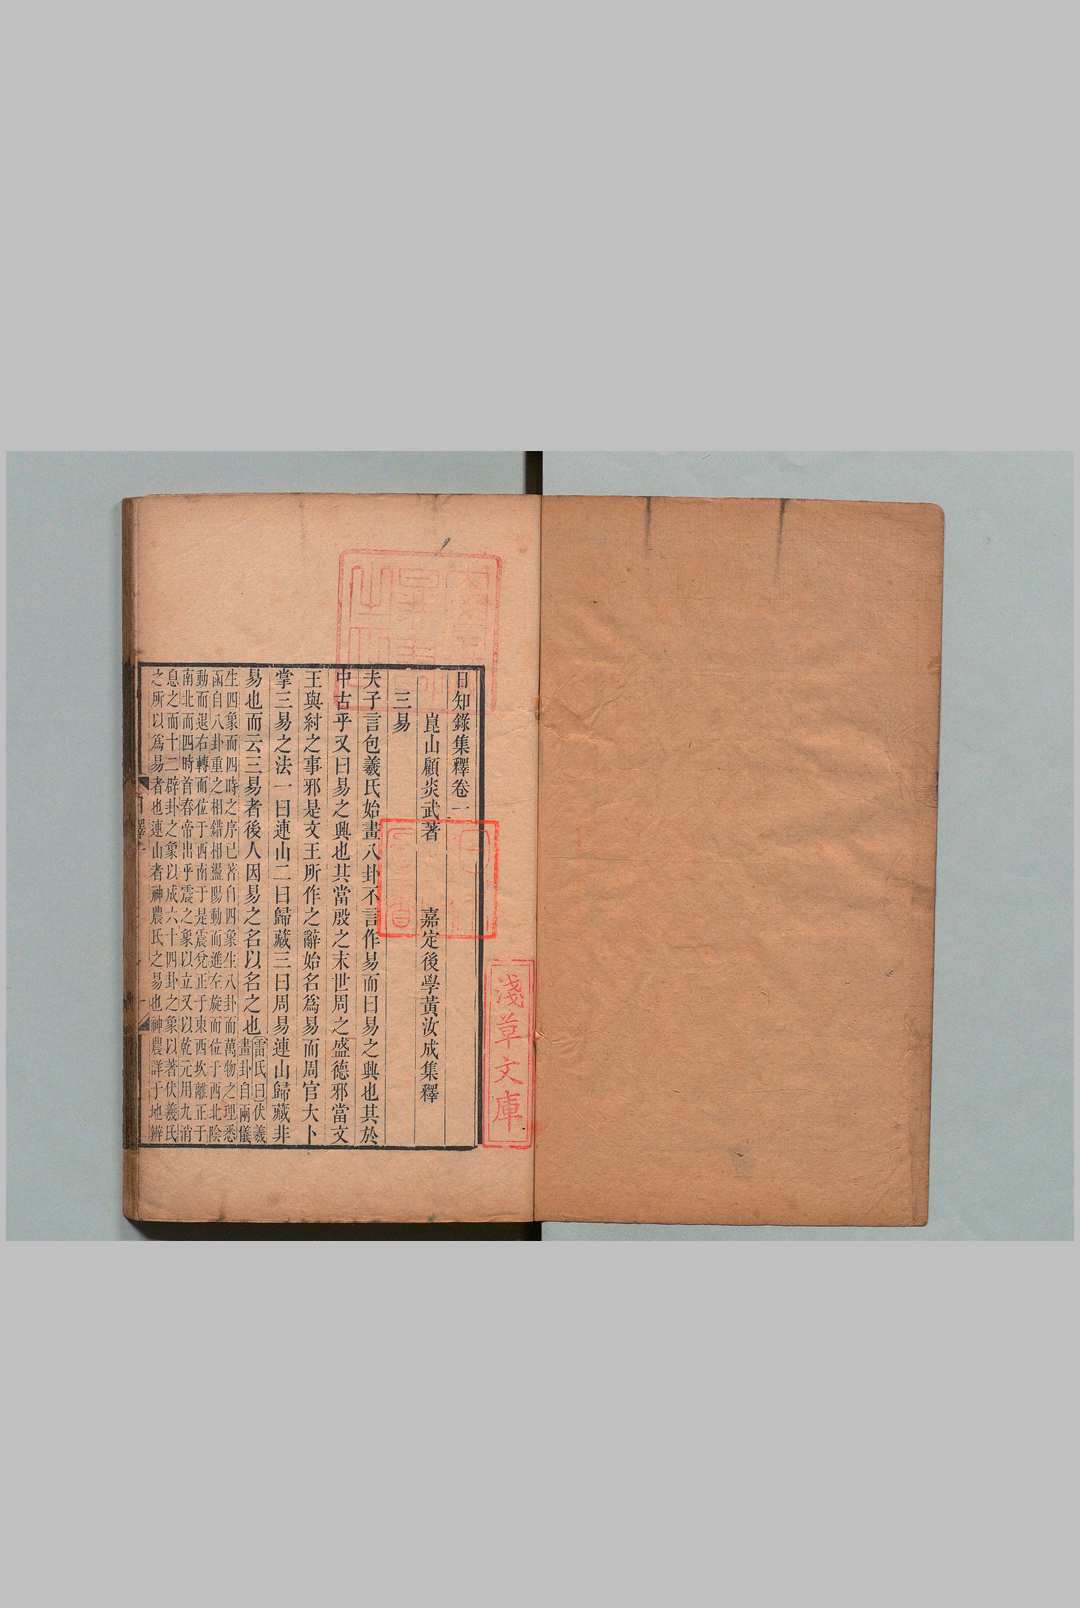 日知錄集釋卷一
崑山顧炎武著　嘉定後學黃汝成集釋
三易
夫子言包羲氏始畫八卦不言作易而曰易之興也其於
中古乎又曰易之興也其當殷之末世周之盛德邪當文
王與紂之事邪是文王所作之辭始名爲易而周官大卜
掌三易之法一曰連山二曰歸藏三曰周易連山歸藏非
易也而云三易者後人因易之名以名之也
雷氏曰伏羲
畫卦自兩儀
生四象而四時之序已著自四象生八卦而萬物之理悉
函自八卦重之相錯相盪陽動而進左旋而位于西北陰
動而退右轉而位于西南于是震兌正于東西坎離正于
南北而四時首春帝出乎震之象以立又以乾元用九消
息之而十二辟卦之象以成六十四卦之象以著伏羲氏
之所以爲易者也連山者神農氏之易也神農詳于地辨
淺草文庫